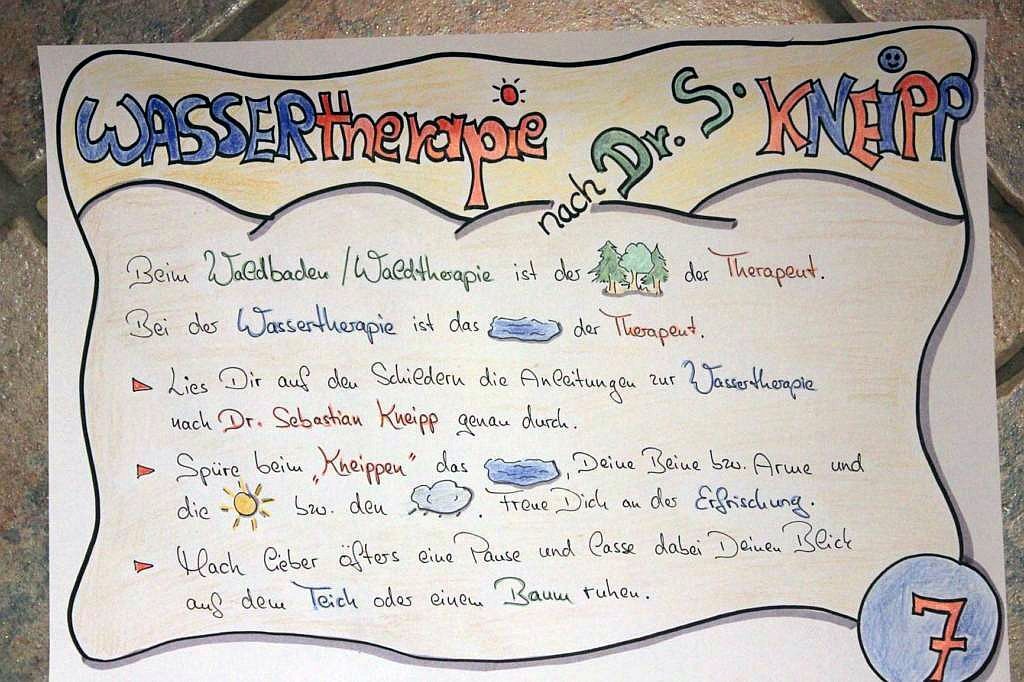 WASSERtherapie nach Dr. S. KNEIPP
Beim Waldbaden / Waldtherapie ist der der Therapeut.
Bei der Wassertherapie ist das der Therapeut.
Lies Dir auf den Schildern die Anleitungen zur Wassertherapie
nach Dr. Sebastian Kneipp genau durch.
Spüre beim „Kneippen" das , Deine Beine bzw. Arme und
die bzw. den . Freue Dich an der Erfrischung.
Mach lieber öfters eine Pause und lasse dabei Deinen Blick
auf dem Teich oder einem Baum ruhen.
7